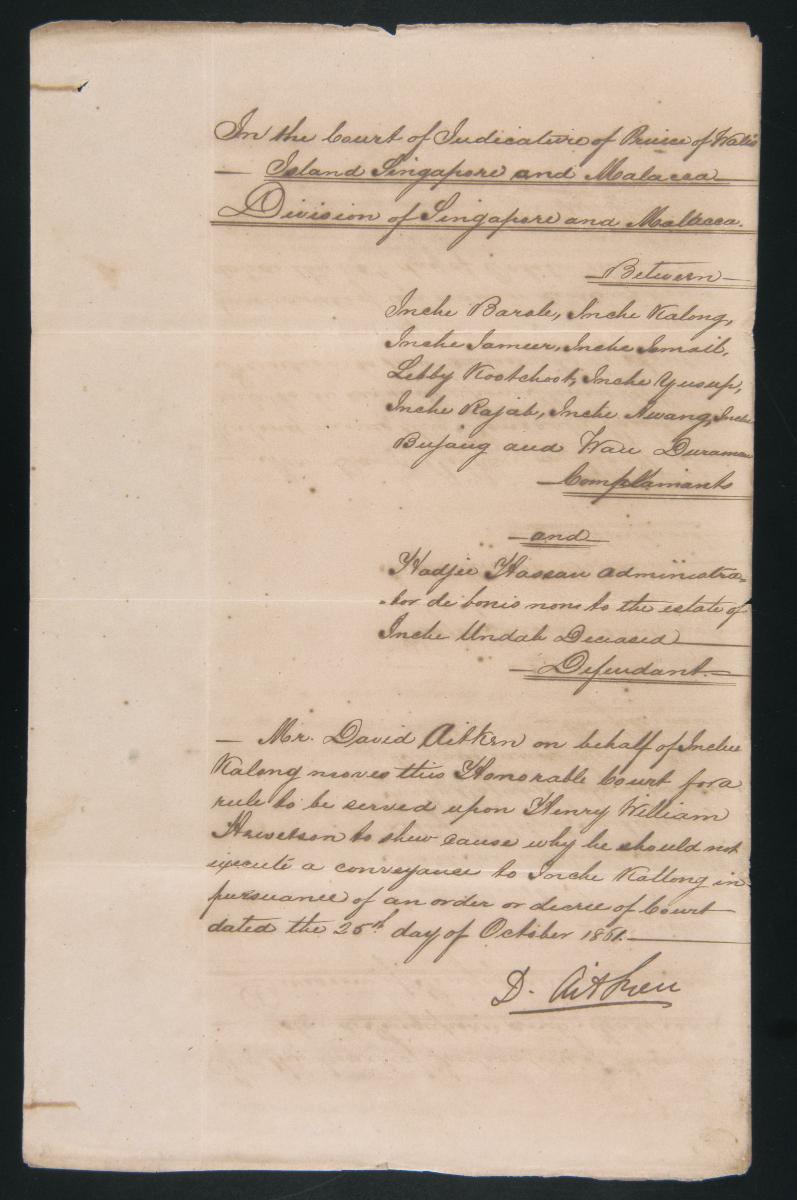 In the Court of Judicature of Prince of Wales
— Island Singapore and Malacca —
Division of Singapore and Malacca.
— Between —
Inche Barole, Inche Kalong,
Inche Jameer, Inche Ismail,
Lebby Kootchoot, Inche Yusup,
Inche Rajab, Inche Awang, Inche
Bujang and Wan Duraman
— Complainants
— and —
Hadjee Hassan administra-
-tor de bonis nons to the estate of
Inche Undah Deceased —
— Defendant. —
— Mr. David Aitken on behalf of Inche
Kalong moves this Honorable Court for a
rule to be served upon Henry William
Hewetson to shew cause why he should not
execute a conveyance to Inche Kallong in
pursuance of an order or decree of Court
dated the 25th day of October 1861. —
D. Aitken